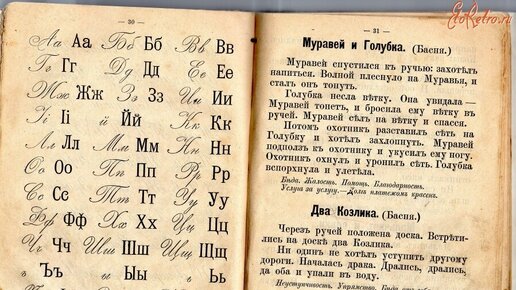 — 30 —
Аа Аа Бб Бб Вв Вв
Гг Гг Дд Дд Ее Ее
Жж Жж Зз Зз Ии Ии
Іі Ii й Йй Кк Кк
Лл Лл Мм Мм Нн Нн
Оо Оо Пп Пп Рр Рр
Сс Сс Тт Тт Уу Уу
Фф Фф Хх Хх Цц Цц
Чч Чч Шш Шш Щщ Щщ
ъ Ъъ ы Ыы ь Ьь
— 31 —
Муравей и Голубка. (Басня.)
Муравей спустился къ ручью: захотѣлъ
напиться. Волной плеснуло на Муравья, и
сталъ онъ тонуть.
Голубка несла вѣтку. Она увидала —
Муравей тонетъ, и бросила ему вѣтку въ
ручей. Муравей сѣлъ на вѣтку и спасся.
Потомъ охотникъ разставилъ сѣть на
Голубку и хотѣлъ захлопнуть. Муравей
подползъ къ охотнику и укусилъ ему ногу.
Охотникъ охнулъ и уронилъ сѣть. Голубка
вспорхнула и улетѣла.
Бѣда. Жалость. Помощь. Благодарность.
Услуга за услугу.—Долгъ платежомъ красенъ.
Два Козлика. (Басня.)
Черезъ ручей положена доска. Встрѣти-
лись на доскѣ два Козлика.
Ни одинъ не хотѣлъ уступить другому
дороги. Началась драка. Дрались, дрались,
да оба и упали въ воду.
Неуступчивость. Упрямство.
EtoRetro.ru